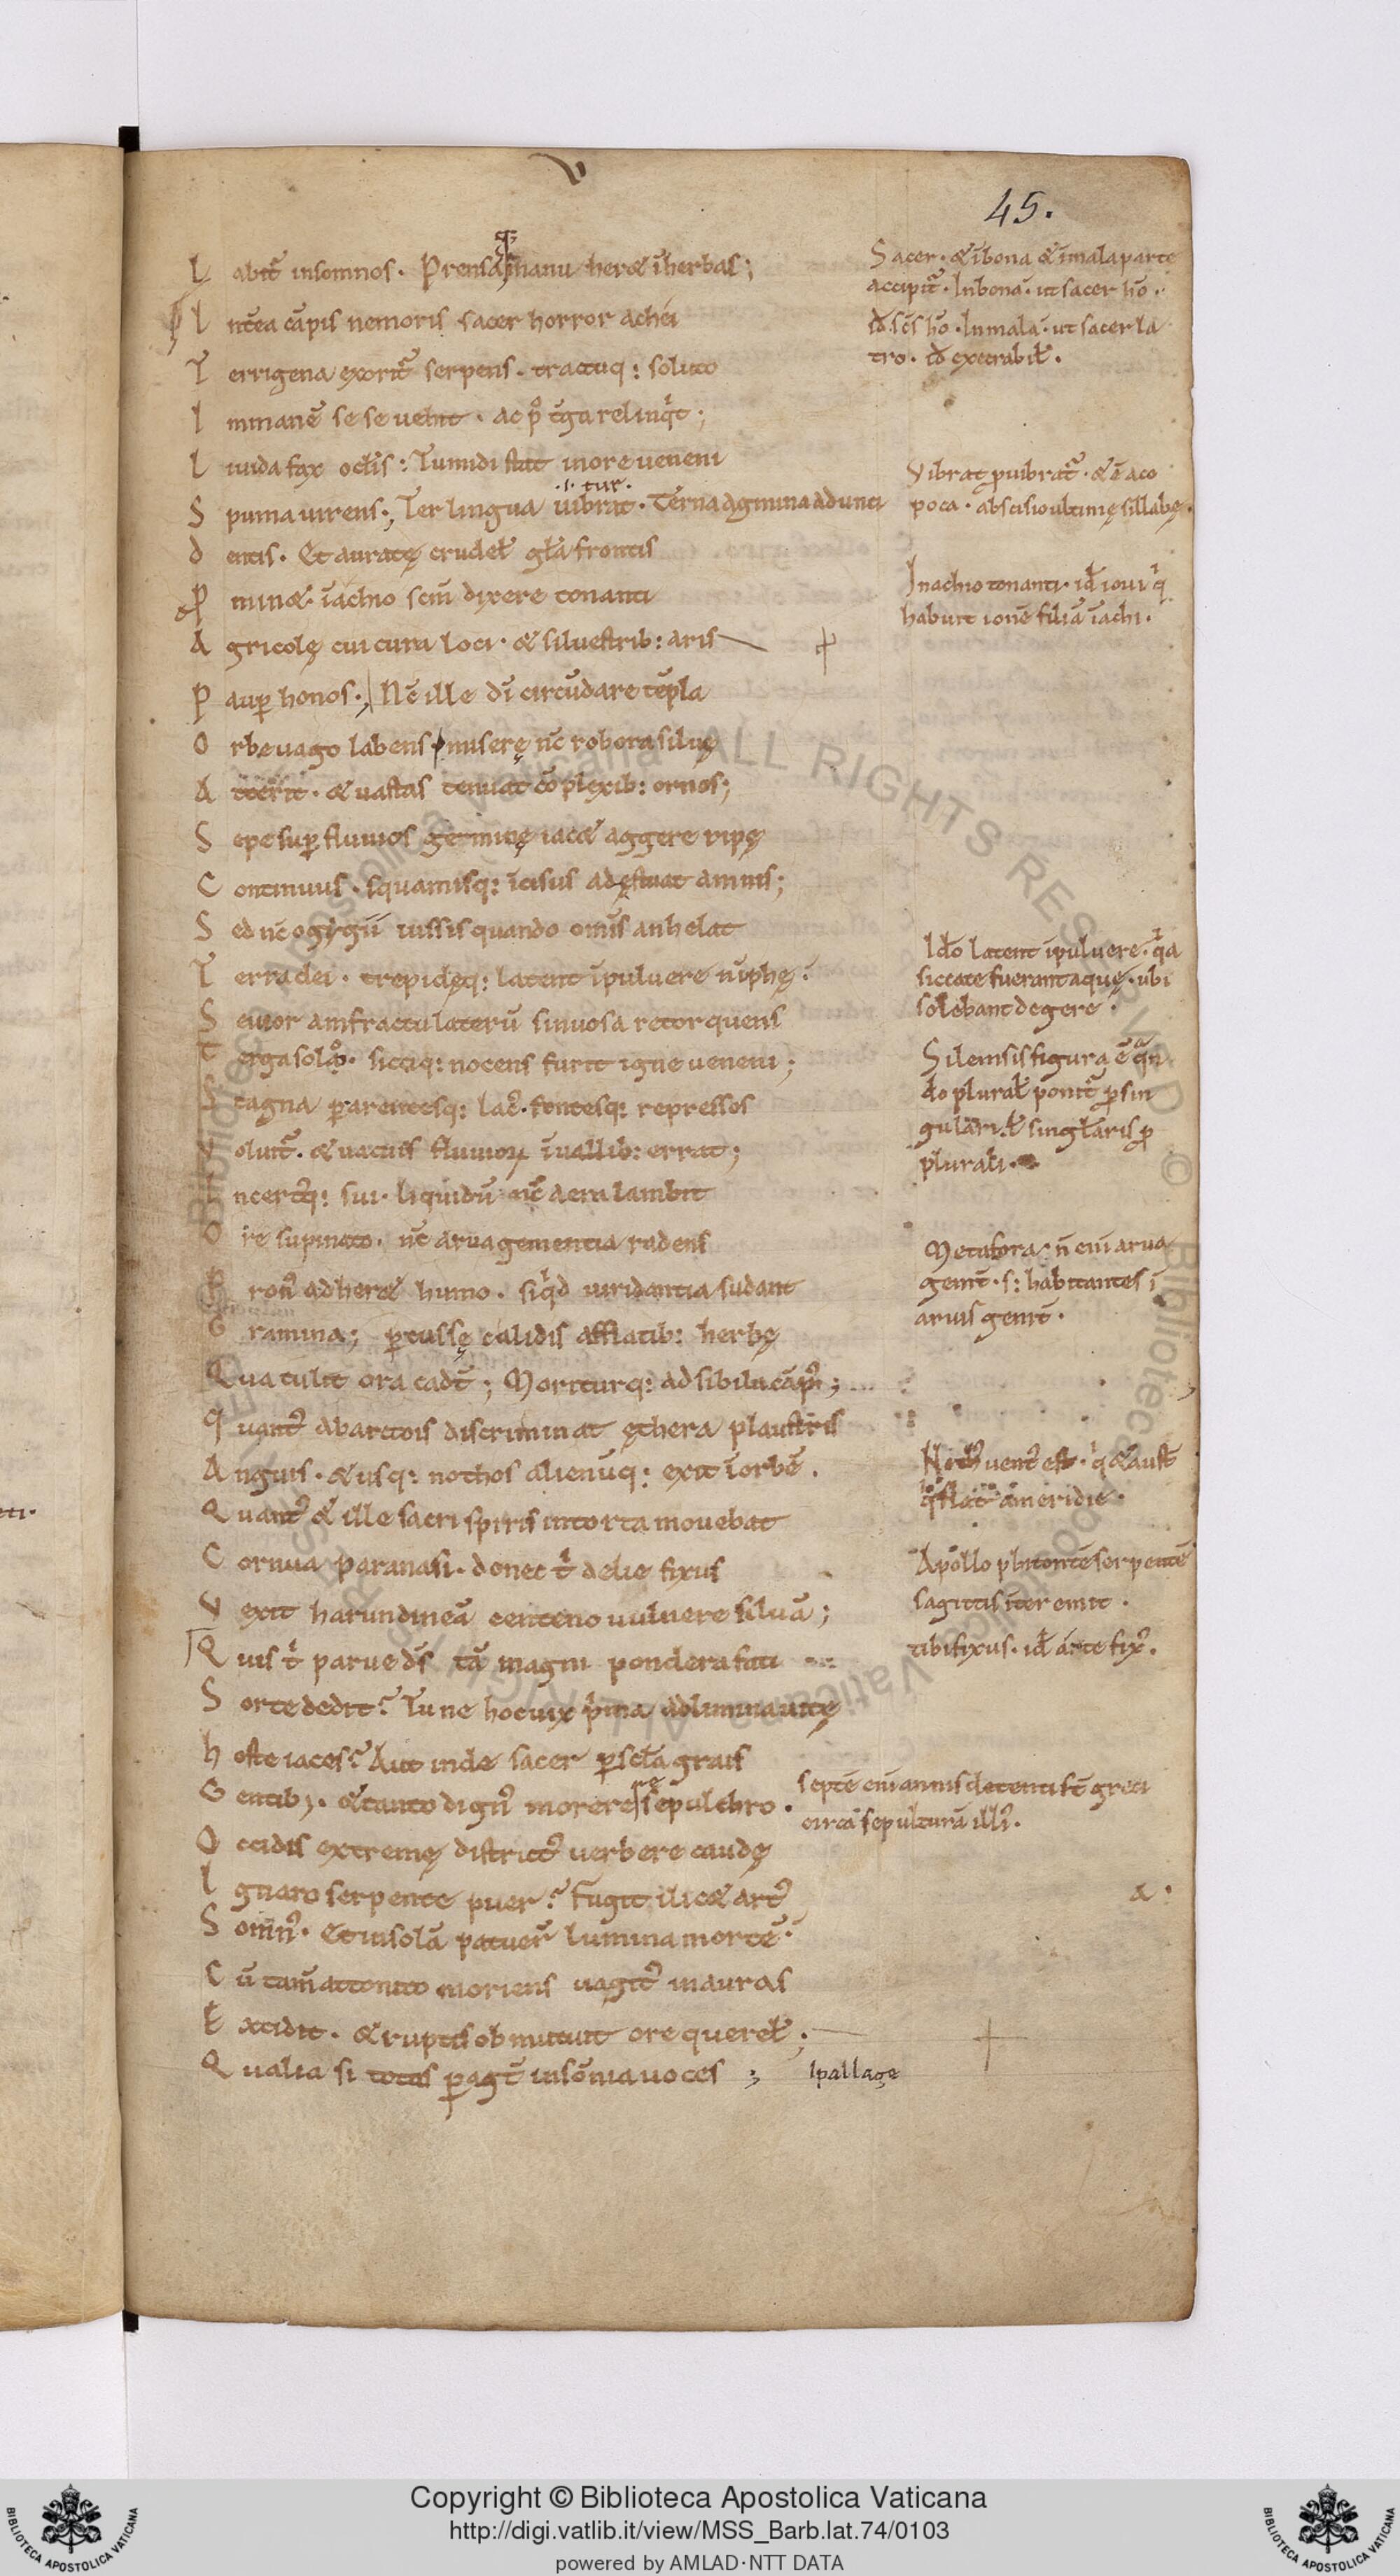 45.
L abit᷑ insomnos. Prensaq; manu heret ī herbas;
I ntea cāpis nemoris sacer horror achei
T errigena exorit᷑ serpens. tractuq: soluto
I mmanē se se vehit. ac p̊ t̄ga relinq̇t;
L iuida fax oclis: Tumidi stat in ore veneni
S puma virens; Ter lingua vibrat. Terna agmina adunci
.i. tur.
D entis. Et auratę crudel̄ gl̄a frontis
P minet. īachio scm̄ dixere tonanti
A gricolę cui cura loci. & silvestrib: aris
P aup honos.; Nc̄ ille dī circūdare tēpla
O rbe vago labens. miserę nc̄ robora silvę
A tterit. & vastas tenuat cōplexib: ornos;
S epe sup fluvios geminę iacet aggere ripę
C ontinuus. squamisq: īcisus adęstuat amnis;
S ed nc̄ ogygii iussis quando om̄is anhelat
T erra dei. trepidęq: latent ī pulvere nīphę.
S evior amfractu laterū sinuosa retorquens
T erga solo. sicciq: nocens furit igne veneni;
S tagna p arentesq: lac̄. fontesq: repressos
V olvit᷑. & vacuis fluvioꝝ ī vallib: errat;
I ncertq: sui. liquidū nc̄ aera lambit
O re supinato. nc̄ arva gementia radens
P ron᷒ adheret humo. siq̇d viridantia sudant
G ramina; p cussę calidis afflatib: herbę
Q ua tulit ora cadt̄; Moriturq: ad sibila cāp᷒;
Q uant᷒ ab arctois discriminat ęthera plaustris
A nguis. & usq: nothos alienūq: exit ī orbē.
Q uant᷒ & ille sacri spiris intorta movebat
C ornua paranasi. donec t̄ delie fixus
V exit harundineā centeno vulnere silvā;
Q uis t̄ parve ds̄ tā magni pondera fati
S orte dedit? Tu ne hoc vix p̄ma ad limina vitę
h oste iaces? Aut inde sacer p scl̄a grais
G entib;. & tanto dign᷒ morere sepulchro.
O ccidis extremę district᷒ verbere caudę
I gnaro serpente puer? Fugit ilicet art᷒
S omn᷒. Et in solā patuer̄ lumina mortē.
C ū tam̄ attonito moriens vagit᷒ in auras
E xcidit. & ruptis obmutuit ore querel̄;
Q ualia si totas pagt̄ insōnia voces; Ipallage
Sacer. & ī bona & ī mala parte
accipit᷑. In bonā. ut sacer hō.
id̄. scs̄ hō. In malā. ut sacer la
tro. id̄ execrabil̄.
Vibrat p vibrat᷑. & ē aco
poca. abscisio ultimę sillabę.
Inachio tonanti. id̄ iovi q̇
habuit ionē filiā īachi.
Ido latent ī pulvere. q̇a
siccate fuerant aquę. ubi
solebant degere.
Silemsis figura ē qn̄
do plural̄ ponit᷑ p sin
gulari. l̄ singl̄aris p
plurali.
Metafora. n̄ eni arva
gemt̄. s: habitantes ī
arvis gemt̄.
Noth᷒ vent᷒ est. q̇ & aust̄
q̇ flat a meridie.
Apollo phitontē serpentē
sagittis īteremit.
tibi fixus. id̄ a te fix᷒.
septē eni annis detenti st̄ greci
circa sepulturā illi᷒.
a.
Copyright © Biblioteca Apostolica Vaticana
http://digi.vatlib.it/view/MSS_Barb.lat.74/0103
powered by AMLAD·NTT DATA